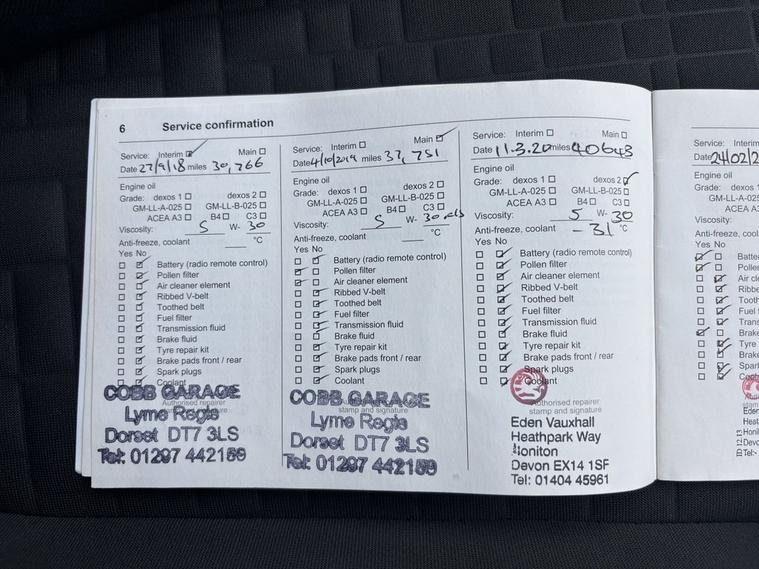 6 Service confirmation
Service: Interim ☑ Main ☐
Date 27/9/18 miles 30,766
Engine oil
Grade: dexos 1 ☐ dexos 2 ☐
GM-LL-A-025 ☐ GM-LL-B-025 ☐
ACEA A3 ☐ B4 ☐ C3 ☐
Viscosity: 5 W- 30
Anti-freeze, coolant °C
Yes No
☐ ☑ Battery (radio remote control)
☐ ☑ Pollen filter
☐ ☑ Air cleaner element
☐ ☑ Ribbed V-belt
☐ ☑ Toothed belt
☐ ☑ Fuel filter
☐ ☑ Transmission fluid
☐ ☑ Brake fluid
☐ ☑ Tyre repair kit
☐ ☑ Brake pads front / rear
☐ ☑ Spark plugs
☐ ☑ Coolant
Authorised repairer
COBB GARAGE
Lyme Regis
Dorset DT7 3LS
Tel: 01297 442189
Service: Interim ☐ Main ☑
Date 4/10/2019 miles 37,751
Engine oil
Grade: dexos 1 ☐ dexos 2 ☐
GM-LL-A-025 ☐ GM-LL-B-025 ☐
ACEA A3 ☐ B4 ☐ C3 ☐
Viscosity: 5 W- 30
Anti-freeze, coolant °C
Yes No
☐ ☑ Battery (radio remote control)
☑ ☐ Pollen filter
☑ ☐ Air cleaner element
☐ ☑ Ribbed V-belt
☐ ☑ Toothed belt
☐ ☑ Fuel filter
☐ ☑ Transmission fluid
☐ ☑ Brake fluid
☐ ☑ Tyre repair kit
☐ ☑ Brake pads front / rear
☐ ☑ Spark plugs
☐ ☑ Coolant
COBB GARAGE
stamp and signature
Lyme Regis
Dorset DT7 3LS
Tel: 01297 442189
Service: Interim ☐ Main ☐
Date 11.3.20 miles 40643
Engine oil
Grade: dexos 1 ☐ dexos 2 ☑
GM-LL-A-025 ☐ GM-LL-B-025 ☐
ACEA A3 ☐ B4 ☐ C3 ☐
Viscosity: 5 W- 30
Anti-freeze, coolant -31 °C
Yes No
☐ ☑ Battery (radio remote control)
☐ ☑ Pollen filter
☐ ☑ Air cleaner element
☐ ☑ Ribbed V-belt
☐ ☑ Toothed belt
☐ ☑ Fuel filter
☐ ☑ Transmission fluid
☐ ☑ Brake fluid
☐ ☑ Tyre repair kit
☐ ☑ Brake pads front / rear
☐ ☑ Spark plugs
☐ ☑ Coolant
Authorised repairer
stamp and signature
Eden Vauxhall
Heathpark Way
Honiton
Devon EX14 1SF
Tel: 01404 45961
Service: Interim
Date 24/02/2
Engine oil
Grade: dexos
GM-LL-A-025
ACEA A3
Viscosity:
Anti-freeze, cool
Yes No
☑ ☐ Batte
☑ ☐ Polle
☐ ☑ Air cl
☐ ☑ Ribbe
☐ ☑ Tooth
☐ ☑ Fuel
☐ ☑ Trans
☑ ☐ Brake
☐ ☑ Tyre
☐ ☑ Brake
☐ ☑ Spar
☐ ☑ Cool
Eden
Heat
Honi
Devo
Tel: